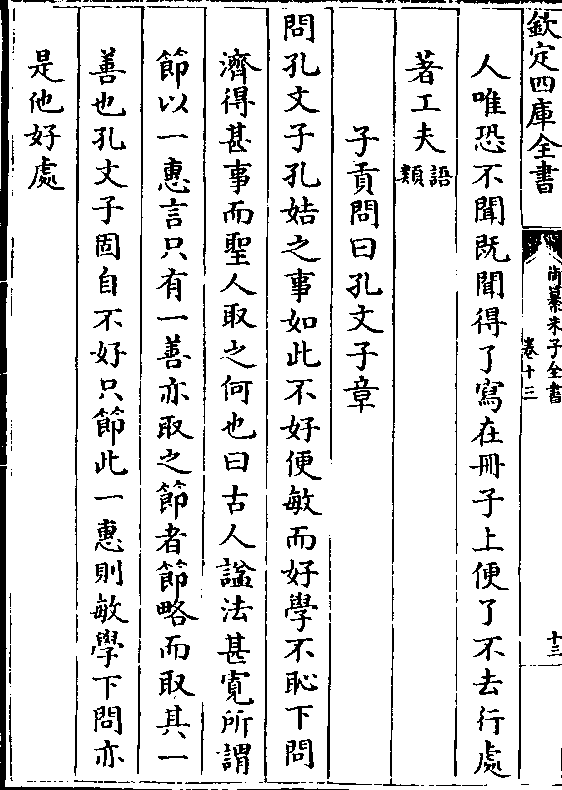 欽定四庫全書
御纂朱子全書
卷十三
十三
人唯恐不聞既聞得了寫在冊子上便了不去行處
著工夫語類
子貢問曰孔文子章
問孔文子孔姞之事如此不好便敏而好學不恥下問
濟得甚事而聖人取之何也曰古人諡法甚寛所謂
節以一惠言只有一善亦取之節者節略而取其一
善也孔文子固自不好只節此一惠則敏學下問亦
是他好處